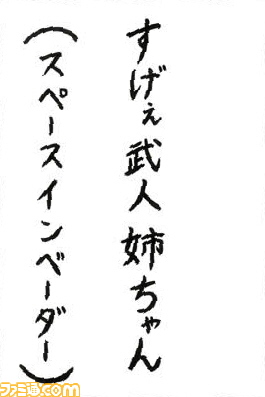 すげぇ武人姉ちゃん
（スペースインベーダー）
ファミ通.com